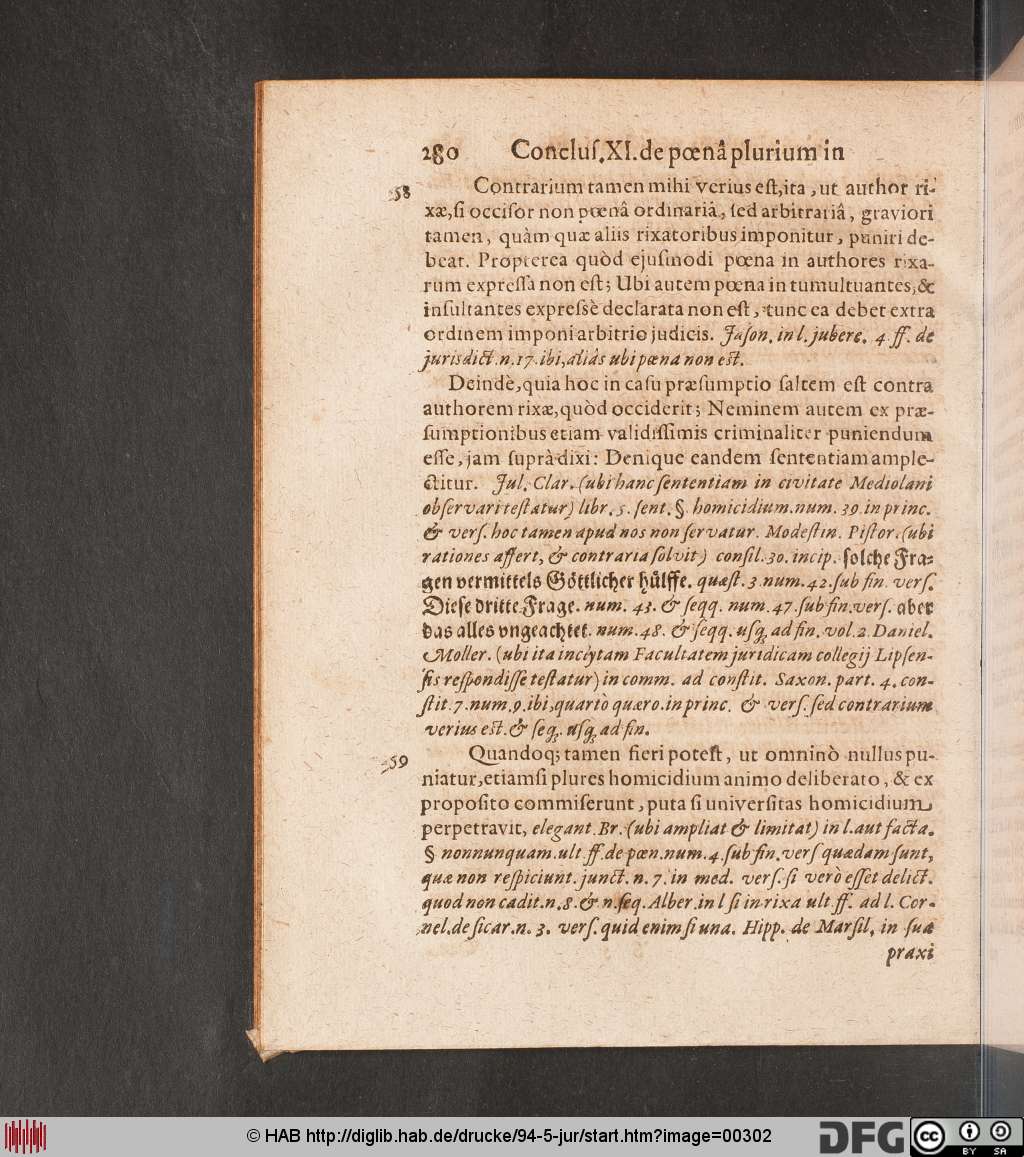 280 Concluſ. XI. de pœnâ plurium in
58 Contrarium tamen mihi verius eſt, ita, ut author ri-
xæ, ſi occiſor non pœnâ ordinariâ, ſed arbitrariâ, graviori
tamen, quàm quæ aliis rixatoribus imponitur, puniri de-
beat. Propterea quòd ejuſmodi pœna in authores rixa-
rum expreſſa non eſt; Ubi autem pœna in tumultuantes, &
inſultantes expreſsè declarata non eſt, tunc ea debet extra
ordinem imponi arbitrio judicis. Jaſon. in l. jubere. 4. ff. de
jurisdict. n. 17. ibi, aliàs ubi pœna non est.
Deindè, quia hoc in caſu præſumptio ſaltem eſt contra
authorem rixæ, quòd occiderit; Neminem autem ex præ-
ſumptionibus etiam validiſſimis criminaliter puniendum
eſſe, jam ſuprà dixi: Denique eandem ſententiam ample-
ctitur. Jul. Clar. (ubi hanc ſententiam in civitate Mediolani
obſervari teſtatur) libr. 5. ſent. § homicidium. num. 39. in princ.
& verſ. hoc tamen apud nos non ſervatur. Modeſtin. Piſtor. (ubi
rationes affert, & contraria ſolvit) conſil. 30. incip. ſolche Fra-
gen vermittels Göttlicher hülffe. quæſt. 3. num. 42. ſub fin. verſ.
Dieſe dritte Frage. num. 43. & ſeqq. num. 47. ſub fin. verſ. aber
das alles vngeachtet. num. 48. & ſeqq. uſq; ad fin. vol. 2. Daniel.
Moller. (ubi ita inclytam Facultatem juridicam collegij Lipſen-
ſis reſpondiſſe teſtatur) in comm. ad conſtit. Saxon. part. 4. con-
ſtit. 7. num. 9. ibi, quartò quæro. in princ. & verſ. ſed contrarium
verius est. & ſeq. uſq; ad fin.
59 Quandoq; tamen fieri poteſt, ut omninò nullus pu-
niatur, etiamſi plures homicidium animo deliberato, & ex
propoſito commiſerunt, puta ſi univerſitas homicidium
perpetravit, elegant. Br. (ubi ampliat & limitat) in l. aut facta.
§ nonnunquam. ult. ff. de pœn. num. 4. ſub fin. verſ quædam ſunt,
quæ non reſpiciunt. junct. n. 7. in med. verſ. ſi verò eſſet delict.
quod non cadit. n. 8. & n. ſeq. Alber. in l ſi in rixa ult. ff. ad l. Cor-
nel. de ſicar. n. 3. verſ. quid enim ſi una. Hipp. de Marſil. in ſua
praxi
© HAB http://diglib.hab.de/drucke/94-5-jur/start.htm?image=00302
DFG
cc
BY SA